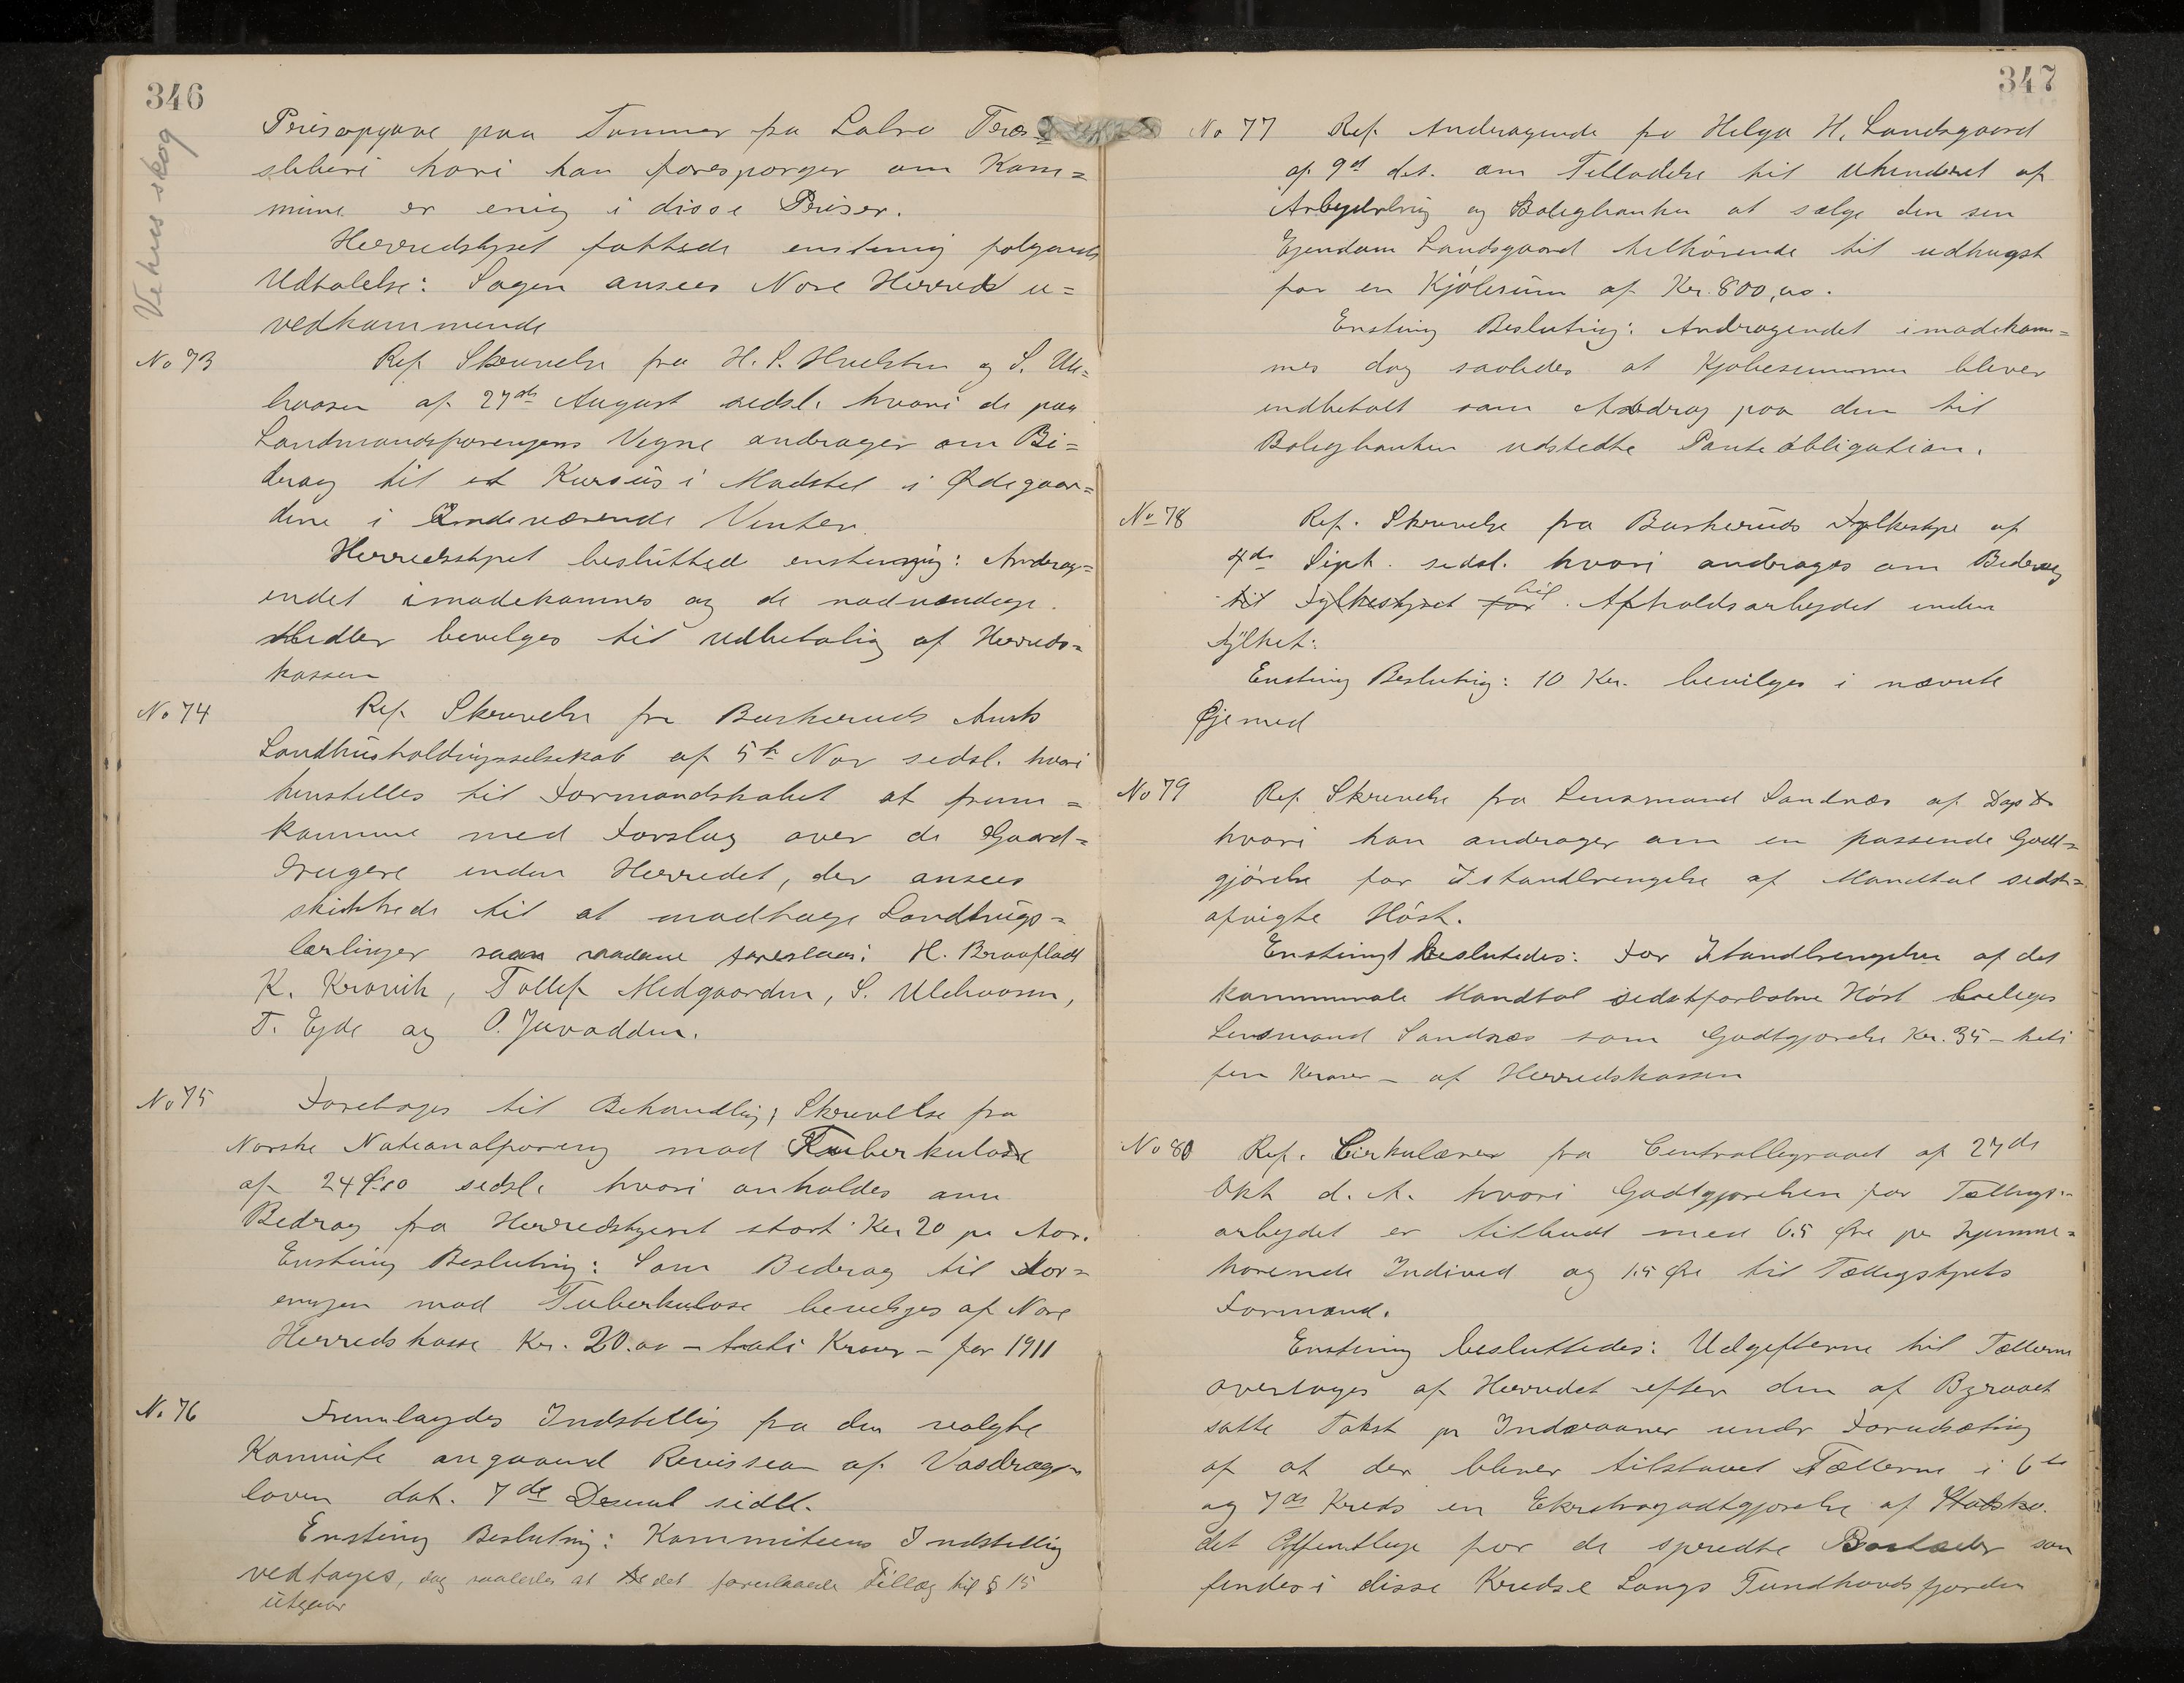 346
Vehus skog
Prisopgave paa Tømmer fra Labro Træs=
sliberi hvori han forespørger om Kom=
mune er enig i disse Priser.
Herredstyret fattede enstemig følgende
Udtalelse: Sagen ansees Nore Herred u=
vedkommende
No 73
Ref. Skrivelse fra H. S. og S. Ule=
haasen af 27de August sidstl. hvori de paa
Landmandsforengens Vegne andrager om Bi=
drag til et Kursus i Madstel i Ødegaar=
dene i indeværende Vinter.
Herredsstyret beslutted enstemmig: Andrag=
endet imødekommes og de nødvendige
Midler bevilges til Udbetaling af Herreds=
kassen
No 74
Ref. Skrivelse fra Buskeruds Amts
Landhusholdingsselskab af 5te Nov sidstl. hvori
henstilles til Formandskabet at frem=
komme med Forslag over de Gaard=
brugere inden Herredet, der ansees
skikkede til at modtage Landbrugs=
lærlinger saadane foreslaaes: H. Braafladt
K. Kravik, Tollef Medgaarden, S. Ulehaasen,
T. Eyde og O. Juvodden.
No 75
Foretoges til Behandling; Skrivelse fra
Norske Nationalforening mod Tuberkulose
af 24 sidstl. hvori anholdes om
Bedrag fra Herredstyret stort Kr 20 pr Aar.
Enstemig Beslutnig: Som Bedrag til For=
engen mod Tuberkulose bevilges af Nore
Herredskasse Kr. 20.00 – tyve Kroner – for 1911
No 76
Fremlagdes Indstillig fra den valgte
Komite angaaend Revission af Vasdrags
loven dat. 7de Desemb sidstl.
Enstemig Beslutnig: Kommiteens Indstillig
vedtages, dog saaledes at det foreslaaede Tillæg til § 15
utgaar
347
No 77 Ref. Andragende fra Helge H. Landsgaard
af 9de ds. om Telladelse til uhindret af
Arbeyderbrug og Boligbanken at sælge den sin
Ejendom Landsgaard tilhørende til udhugst
for en Kjøbesum af Kr. 800,00.
Enstemig Beslutnig: Andragendet imødekom=
mes dog saaledes at Kjøbesummen bliver
indbetalt som Afdrag paa den til
Boligbanken udstedte Panteobligation.
No 78 Ref. Skrivelse fra Buskeruds Fylkestyre af
4de Sept. sidstl. hvori andrages om Bedrag
til Fylkestyret for til Afholdsarbejdet inden
Fylket:
Enstemig Beslutnig: 10 Kr. bevilges i nævnte
Øjemed
No 79 Ref. Skrivelse fra Lensmand Sandnæs af Dags D
hvori han andrager om en passende Godt=
gjørelse for Istandbrengelse af Mandtal sidst=
afvigte Høst.
Enstemigt besluttedes: For Istandbrengelse af det
kommunale Mandtal sidstforløbne Høst bevilges
Lensmand Sandnæs som Godtgjørelse Kr. 35 – treti
fem Kroner – af Herredskassen
No 80 Ref. Cirkulære fra Centralbyraaet af 27de
Okt d. A. hvori Godtgjørelsen for Tællings-
arbejdet er tilbudt med 6.5 Øre pr hjemme=
hørende Individ og 1.5 Øre til Tællingstyrets
Formand.
Enstemig besluttedes: Udgifterne til Tællerne
overtages af Herredet efter den af Byraaet
satte Takst pr Indvaaner under Forudsætning
af at der bliver tilstaaet Tællerne i 6te
og 7de Kreds en Ekstragodtgjørelse af Statsk.
det Offentlige for de spredte Bosteder som
findes i disse Kredse Langs Tundhovdfjorden